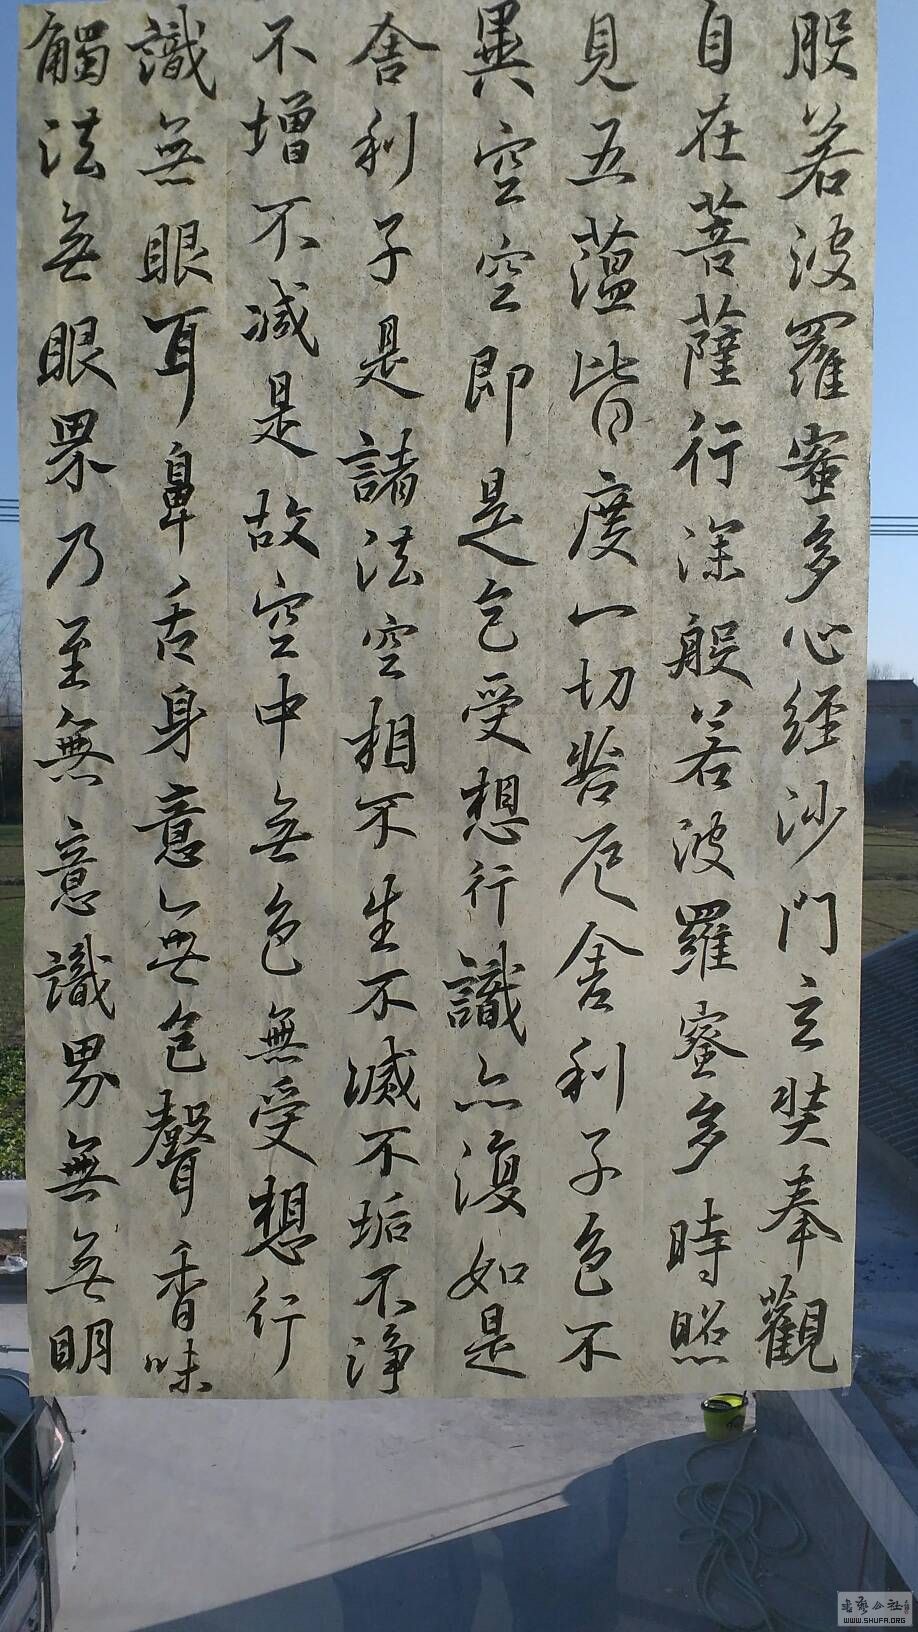 般若波羅蜜多心經沙門玄奘奉觀
自在菩薩行深般若波羅蜜多時照
見五蘊皆度一切苦厄舍利子色不
異空空即是色受想行識亦復如是
舍利子是諸法空相不生不滅不垢不淨
不增不減是故空中無色無受想行
識無眼耳鼻舌身意無色聲香味
觸法無眼界乃至無意識界無無明
書藝公社
WWW.SHUFA.ORG